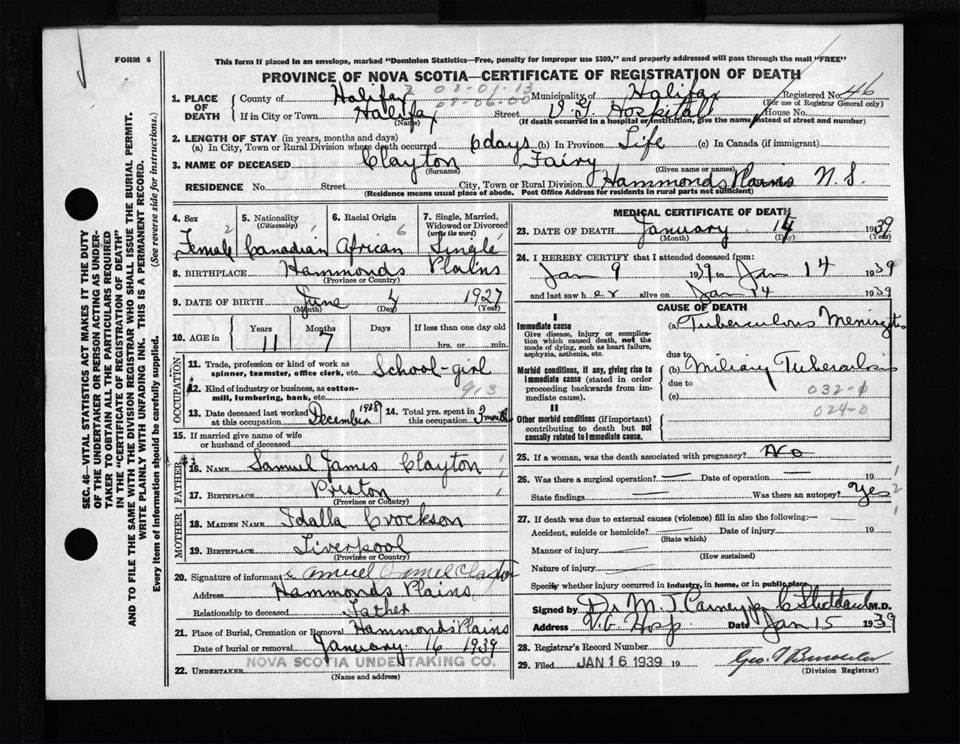 FORM 6
This form if placed in an envelope, marked "Dominion Statistics—Free, penalty for improper use $300," and properly addressed will pass through the mail "FREE"
PROVINCE OF NOVA SCOTIA—CERTIFICATE OF REGISTRATION OF DEATH
1. PLACE OF DEATH County of Halifax 2 08-01-13 Municipality of Halifax Registered No. 46
07-06-00 (For use of Registrar General only)
If in City or Town Halifax Street V. G. Hospital House No.
(Name) (If death occurred in a hospital or institution, give the name instead of street and number)
2. LENGTH OF STAY (in years, months and days)
(a) In City, Town or Rural Division where death occurred 6 days (b) In Province Life (c) In Canada (if immigrant)
3. NAME OF DECEASED Clayton Fairy
(Surname) (Given name or names)
RESIDENCE No. Street City, Town or Rural Division Hammonds Plains N. S.
(Residence means usual place of abode. Post Office Address for residents in rural parts not sufficient)
4. Sex 5. Nationality (Citizenship) 6. Racial Origin 7. Single, Married, Widowed or Divorced (write the word)
2 6
Female Canadian African Single
8. BIRTHPLACE Hammonds Plains
(Province or Country)
9. DATE OF BIRTH June 1927
(Month) (Day) (Year)
10. AGE in Years Months Days If less than one day old
11 7 hrs. or min.
OCCUPATION
11. Trade, profession or kind of work as spinner, teamster, office clerk, etc. School-girl
12. Kind of industry or business, as cotton-mill, lumbering, bank, etc. 913
13. Date deceased last worked at this occupation December 1938 14. Total yrs. spent in
15. If married give name of wife or husband of deceased
FATHER
16. NAME Samuel James Clayton
17. BIRTHPLACE Preston
(Province or Country)
MOTHER
18. MAIDEN NAME Idalla Crockson
19. BIRTHPLACE Liverpool
(Province or Country)
20. Signature of informant Samuel James Clayton
Address Hammonds Plains
Relationship to deceased Father
21. Place of Burial, Cremation or Removal Hammonds Plains
Date of burial or removal January 16 1939
22. UNDERTAKER NOVA SCOTIA UNDERTAKING CO.
(Name and address)
MEDICAL CERTIFICATE OF DEATH
23. DATE OF DEATH January 14 1939
(Month) (Day) (Year)
24. I HEREBY CERTIFY that I attended deceased from:
Jan 9 1939 to Jan 14 1939
and last saw her alive on Jan 14 1939
CAUSE OF DEATH
I
Immediate cause
Give disease, injury or complication which caused death, not the mode of dying, such as heart failure, asphyxia, asthenia, etc.
(a) Tuberculous Meningitis
due to
Morbid conditions, if any, giving rise to immediate cause (stated in order proceeding backwards from immediate cause).
(b) Miliary Tuberculosis
due to 032-0
(c)
024-0
II
Other morbid conditions (if important) contributing to death but not causally related to immediate cause.
25. If a woman, was the death associated with pregnancy? No
26. Was there a surgical operation? — Date of operation — 19
State findings — Was there an autopsy? Yes
27. If death was due to external causes (violence) fill in also the following:—
Accident, suicide or homicide? Date of injury 19
(State which)
Manner of injury
(How sustained)
Nature of injury
Specify whether injury occurred in industry, in home, or in public place
Signed by Dr M. J. Carney C Stoddard M.D.
Address V. G Hosp. Date Jan 15 1939
28. Registrar's Record Number
29. Filed JAN 16 1939 19
(Division Registrar)
SEC. 46—VITAL STATISTICS ACT MAKES IT THE DUTY
OF THE UNDERTAKER OR PERSON ACTING AS UNDER-
TAKER TO OBTAIN ALL THE PARTICULARS REQUIRED
IN THE "CERTIFICATE OF REGISTRATION OF DEATH"
AND TO FILE THE SAME WITH THE DIVISION REGISTRAR WHO SHALL ISSUE THE BURIAL PERMIT.
WRITE PLAINLY WITH UNFADING INK. THIS IS A PERMANENT RECORD.
Every item of information should be carefully supplied. (See reverse side for instructions.)